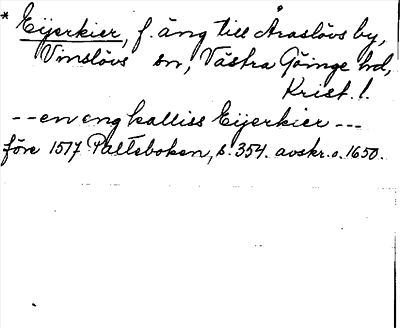 * Eijerkier, f. äng till Araslövs by,
Vinslövs sn, Västra Göinge hd,
Krist. l.
--en eng kalliss Eijerkier---
före 1517 Palteboken, s. 354. avskr. o. 1650.